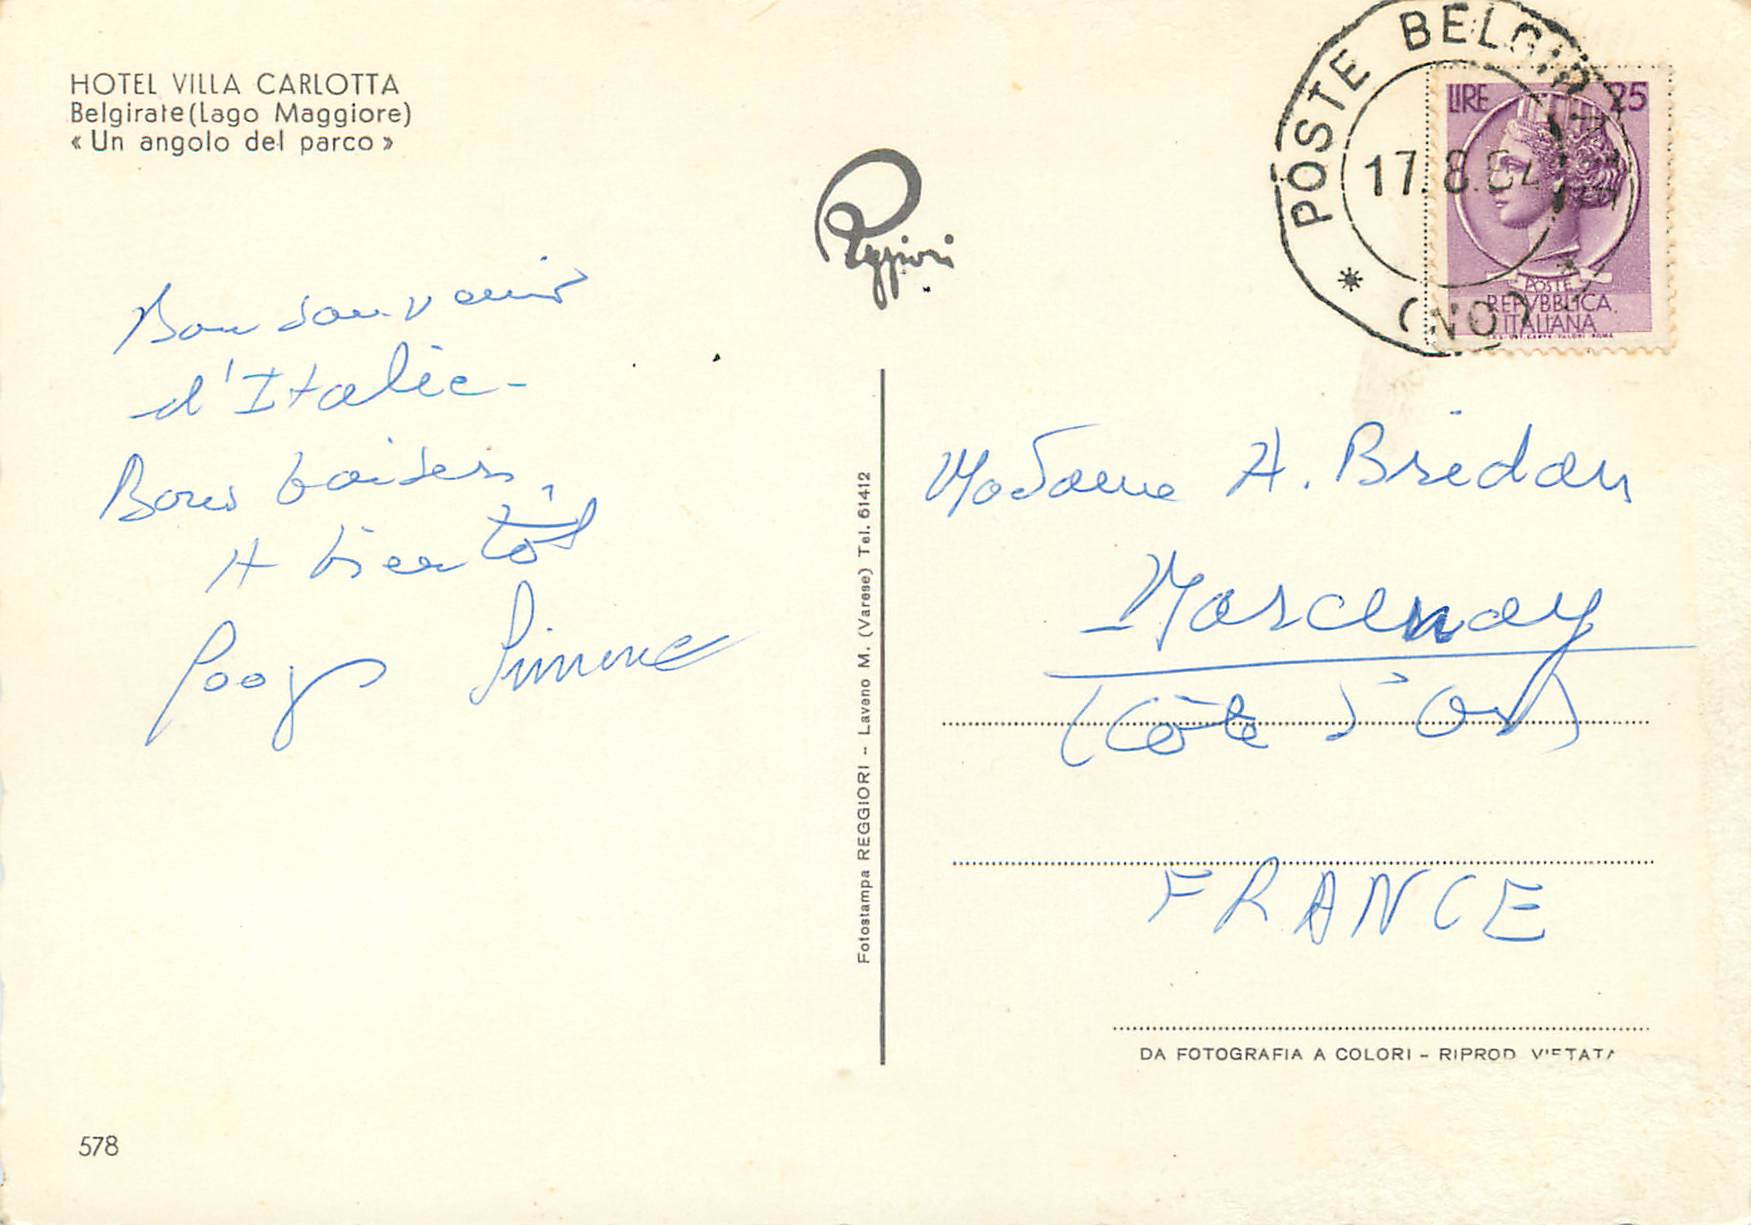 HOTEL VILLA CARLOTTA
Belgirate (Lago Maggiore)
« Un angolo del parco »
Bon souvenir
d'Italie -
Bons baisers,
A bientôt
Simone
578
Reggiori
Fotostampa REGGIORI - Laveno M. (Varese) Tel. 61412
POSTE BELGIRATE
17.8.64
* (NO)
LIRE 25
POSTE
REPVBBLICA
ITALIANA
Madame A. Bredan
Marcenay
(Côte d'Or)
FRANCE
DA FOTOGRAFIA A COLORI - RIPROD. VIETATA